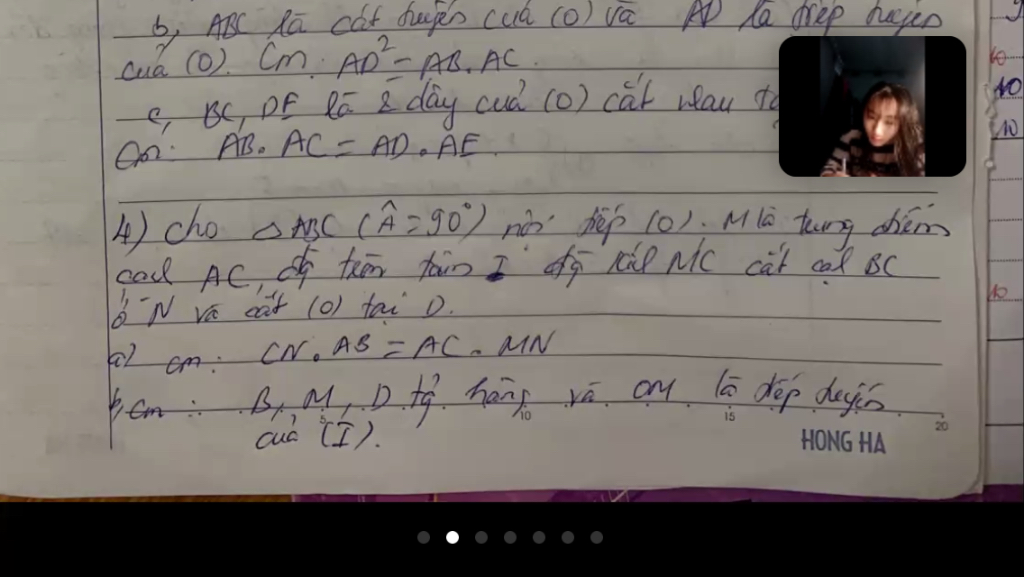 b, ABC là cát tuyến của (O) và AD là tiếp tuyến
của (O). Cm: AD² = AB.AC.
c, BC, DE là 2 dây của (O) cắt nhau
Cm: AB. AC = AD. AE.
4) Cho △ABC (Â=90°) nội tiếp (O). M là trung điểm
cạnh AC, đg tròn tâm I đg kính MC cắt cạnh BC
ở N và cắt (O) tại D.
a) cm: CN. AB = AC. MN
b, cm: B, M, D tg hàng và OM là tiếp tuyến
của (I).
5 10 15 20
HONG HA
10
10
10
10